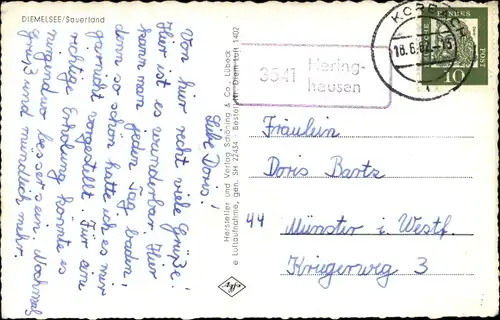 DIEMELSEE/Sauerland
Liebe Doris!
Von hier recht viele Grüße!
Hier ist es wunderbar. Hier
kann man jeden Tag baden,
denn so schön hatte ich es mir
garnicht vorgestellt. Für eine
richtige Erholung könnte es
nirgendwo besser sein. Nochmals
Grüße und mündlich mehr
Hersteller und Verlag Schöning & Co., Lübeck
Luftaufnahme, gen. SH 22454 - Bestell-Nr. Diem Luft 1402
3541 Hering-
hausen
KORBACH
18.6.62-15
BUNDES
POST
10
Fräulein
Doris Bartz
44 Münster i. Westf.
Krügerweg 3